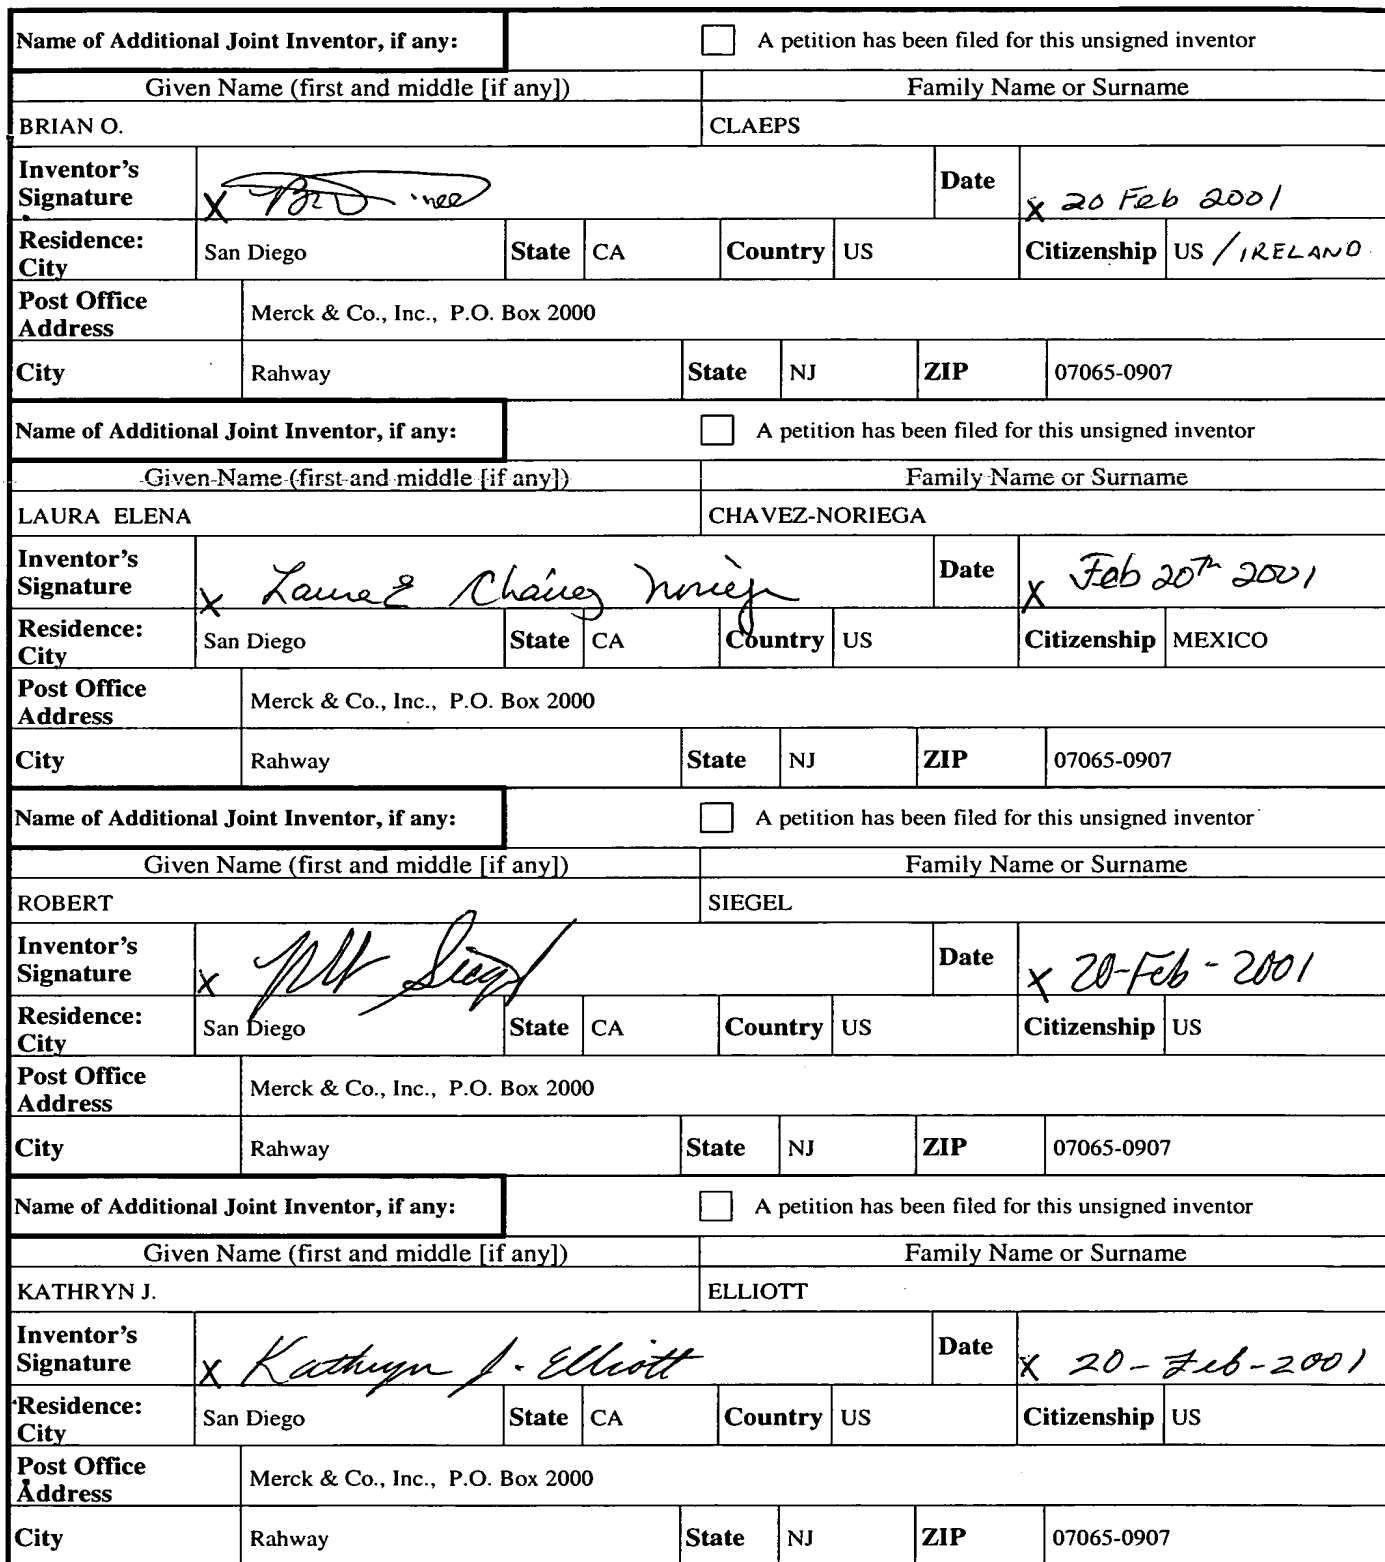 Name of Additional Joint Inventor, if any: A petition has been filed for this unsigned inventor
Given Name (first and middle [if any]) Family Name or Surname
BRIAN O. CLAEPS
Inventor's Signature X Date X 20 Feb 2001
Residence: City San Diego State CA Country US Citizenship US / IRELAND
Post Office Address Merck & Co., Inc., P.O. Box 2000
City Rahway State NJ ZIP 07065-0907
Name of Additional Joint Inventor, if any: A petition has been filed for this unsigned inventor
Given Name (first and middle [if any]) Family Name or Surname
LAURA ELENA CHAVEZ-NORIEGA
Inventor's Signature X Laura E Chávez Noriega Date X Feb 20th 2001
Residence: City San Diego State CA Country US Citizenship MEXICO
Post Office Address Merck & Co., Inc., P.O. Box 2000
City Rahway State NJ ZIP 07065-0907
Name of Additional Joint Inventor, if any: A petition has been filed for this unsigned inventor
Given Name (first and middle [if any]) Family Name or Surname
ROBERT SIEGEL
Inventor's Signature X Siegel Date X 20-Feb-2001
Residence: City San Diego State CA Country US Citizenship US
Post Office Address Merck & Co., Inc., P.O. Box 2000
City Rahway State NJ ZIP 07065-0907
Name of Additional Joint Inventor, if any: A petition has been filed for this unsigned inventor
Given Name (first and middle [if any]) Family Name or Surname
KATHRYN J. ELLIOTT
Inventor's Signature X Kathryn J. Elliott Date X 20-Feb-2001
Residence: City San Diego State CA Country US Citizenship US
Post Office Address Merck & Co., Inc., P.O. Box 2000
City Rahway State NJ ZIP 07065-0907